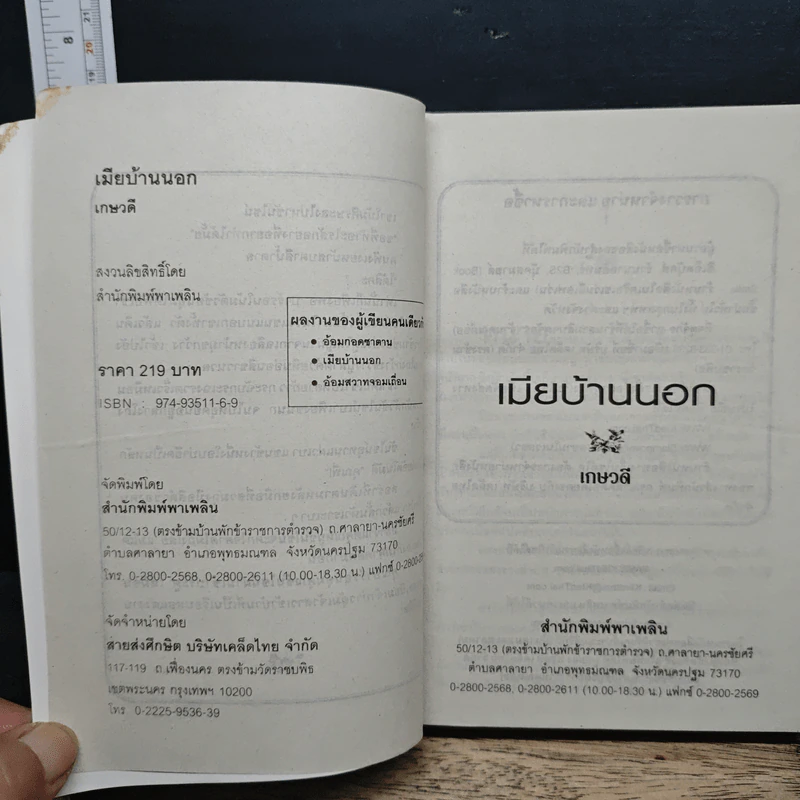 8
21
20
19
เมียบ้านนอก
เกษวดี
สงวนลิขสิทธิ์โดย
สำนักพิมพ์พาเพลิน
ราคา 219 บาท
ISBN : 974-93511-6-9
ผลงานของผู้เขียนคนเดียวกั
• อ้อมกอดซาตาน
• เมียบ้านนอก
• อ้อมสวาทจอมเถื่อน
จัดพิมพ์โดย
สำนักพิมพ์พาเพลิน
50/12-13 (ตรงข้ามบ้านพักข้าราชการตำรวจ) ถ.ศาลายา-นครชัยศรี
ตำบลศาลายา อำเภอพุทธมณฑล จังหวัดนครปฐม 73170
โทร. 0-2800-2568, 0-2800-2611 (10.00-18.30 น.) แฟกซ์ 0-2800-256
จัดจำหน่ายโดย
สายส่งศึกษิต บริษัทเคล็ดไทย จำกัด
117-119 ถ.เฟื่องนคร ตรงข้ามวัดราชบพิธ
เขตพระนคร กรุงเทพฯ 10200
โทร 0-2225-9536-39
เมียบ้านนอก
เกษวลี
สำนักพิมพ์พาเพลิน
50/12-13 (ตรงข้ามบ้านพักข้าราชการตำรวจ) ถ.ศาลายา-นครชัยศรี
ตำบลศาลายา อำเภอพุทธมณฑล จังหวัดนครปฐม 73170
0-2800-2568, 0-2800-2611 (10.00-18.30 น.) แฟกซ์ 0-2800-2569